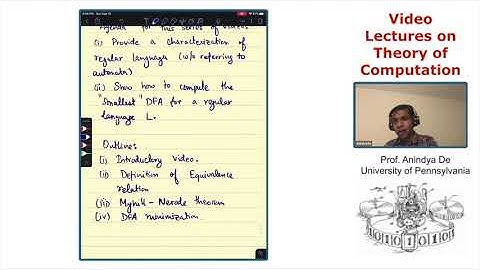 Agenda for this series of videos
(i) Provide a characterization of
regular language (w/o referring to
automata)
(ii) Show how to compute the
"smallest" DFA for a regular
language L.
Outline:
(i) Introductory video.
(ii) Definition of Equivalence
relation
(iii) Myhill - Nerode theorem
(iv) DFA minimization
Video
Lectures on
Theory of
Computation
Prof. Anindya De
University of Pennsylvania